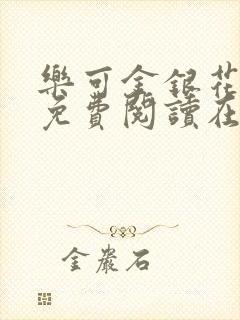 樂可金銀花
免費閱讀在
金嚴石